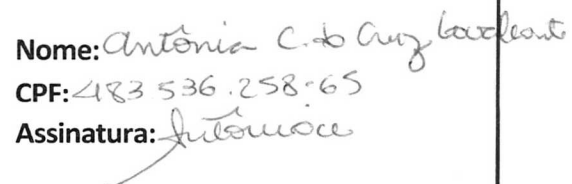 Nome: Antônia C. da Cruz Cavalcante
CPF: 483 536.258-65
Assinatura: Antônia